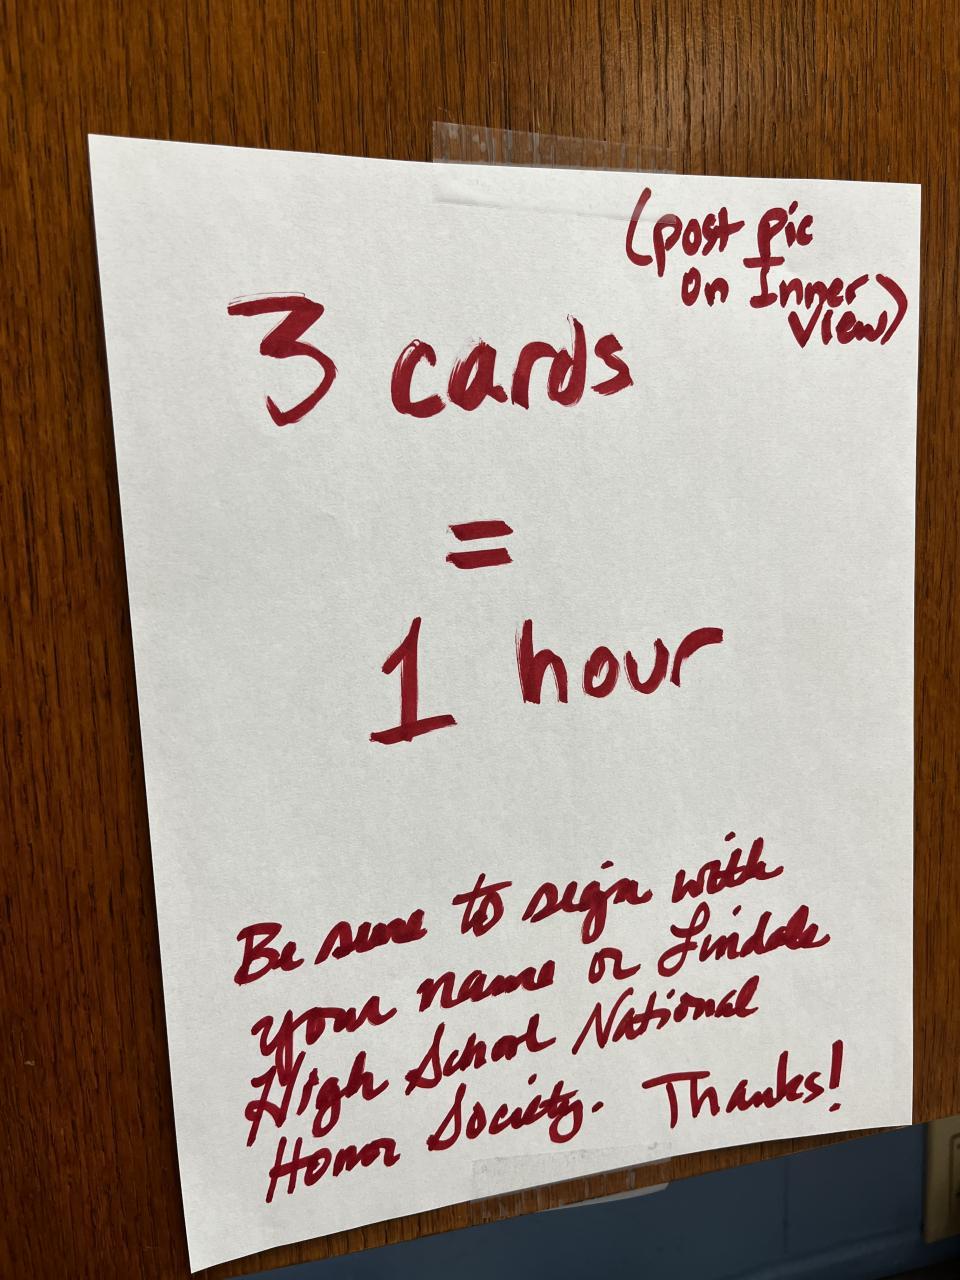 (post pic
on Inner
View)
3 cards
=
1 hour
Be sure to sign with
your name or Lindale
High School National
Honor Society. Thanks!